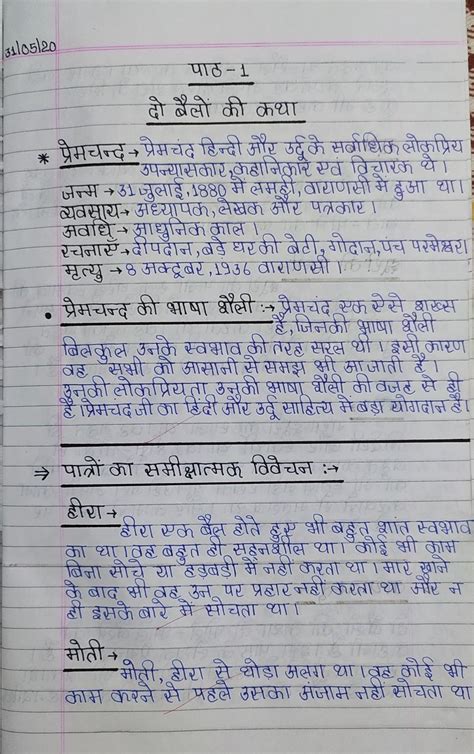 31/05/20
पाठ-1
दो बैलों की कथा
* प्रेमचन्द → प्रेमचंद हिन्दी और उर्दू के सर्वाधिक लोकप्रिय
उपन्यासकार, कहानिकार एवं विचारक थे।
जन्म → 31 जुलाई, 1880 में लमही, वाराणसी में हुआ था।
व्यवसाय → अध्यापक, लेखक और पत्रकार।
अवधि → आधुनिक काल।
रचनाएँ → दीपदान, बड़े घर की बेटी, गोदान, पंच परमेश्वर।
मृत्यु → 8 अक्टूबर, 1936 वाराणसी।
• प्रेमचन्द की भाषा शैली :→ प्रेमचंद एक ऐसे शख्स
है, जिनकी भाषा शैली
बिलकुल उनके स्वभाव की तरह सरल थी। इसी कारण
वह सभी को आसानी से समझ भी आ जाती है।
उनकी लोकप्रियता उनकी भाषा शैली की वजह से ही
है। प्रेमचंद जी का हिंदी और उर्दू साहित्य में बड़ा योगदान है।
⇒ पात्रों का समीक्षात्मक विवेचन :→
हीरा →
हीरा एक बैल होते हुए भी बहुत शांत स्वभाव
का था। वह बहुत ही सहनशील था। कोई भी काम
बिना सोचे या हड़बड़ी में नहीं करता था। मार खाने
के बाद भी वह उन पर प्रहार नहीं करता था और न
ही इसके बारे में सोचता था।
मोती →
मोती, हीरा से थोड़ा अलग था। वह कोई भी
काम करने से पहले उसका अंजाम नहीं सोचता था